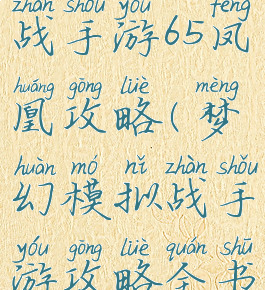 zhàn shǒu yóu fèng
战手游65凤
huáng gōng lüè mèng
凰攻略(梦
huàn mó nǐ zhàn shǒu
幻模拟战手
yóu gōng lüè quán shū
游攻略全书